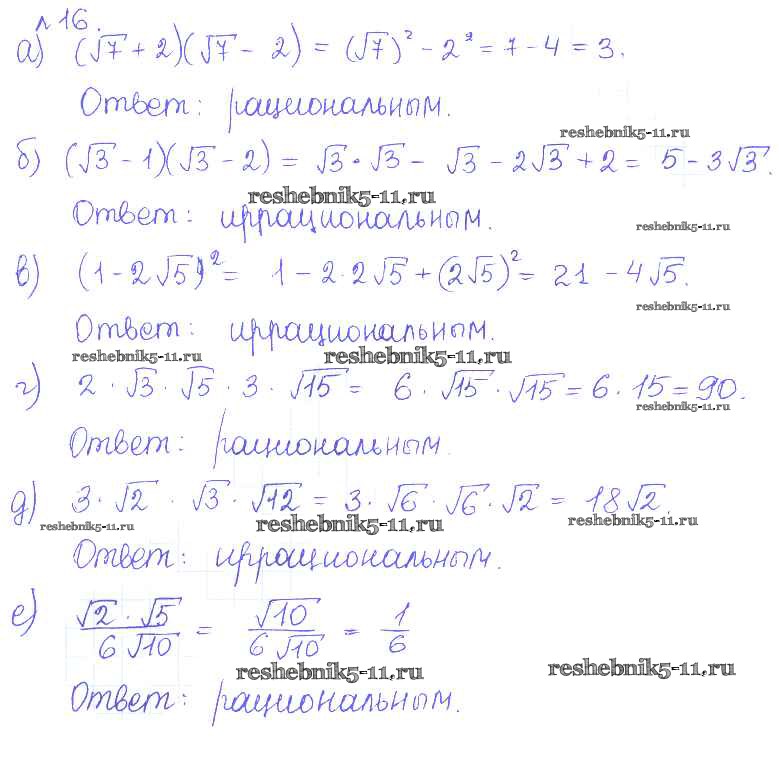 №16.
а) (√7 + 2)(√7 - 2) = (√7)² - 2² = 7 - 4 = 3.
Ответ: рациональным.
reshebnik5-11.ru
б) (√3 - 1)(√3 - 2) = √3 · √3 - √3 - 2√3 + 2 = 5 - 3√3.
reshebnik5-11.ru
Ответ: иррациональным.
reshebnik5-11.ru
в) (1 - 2√5)² = 1 - 2·2√5 + (2√5)² = 21 - 4√5.
reshebnik5-11.ru
Ответ: иррациональным.
reshebnik5-11.ru reshebnik5-11.ru
г) 2 · √3 · √5 · 3 · √15 = 6 · √15 · √15 = 6 · 15 = 90.
reshebnik5-11.ru
Ответ: рациональным.
д) 3 · √2 · √3 · √12 = 3 · √6 · √6 · √2 = 18√2.
reshebnik5-11.ru reshebnik5-11.ru reshebnik5-11.ru
Ответ: иррациональным.
е) √2 · √5 / 6√10 = √10 / 6√10 = 1/6
reshebnik5-11.ru reshebnik5-11.ru
Ответ: рациональным.